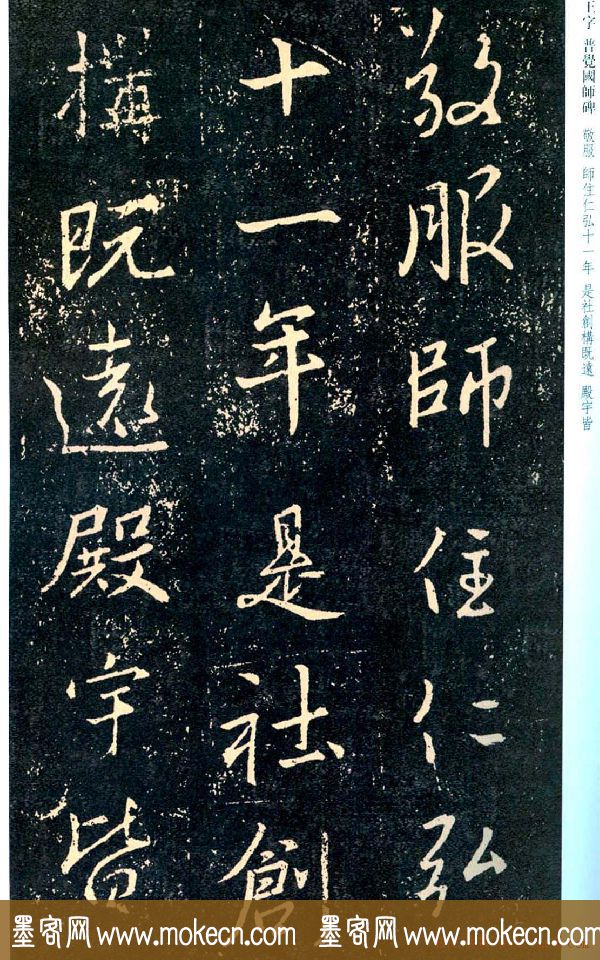 王字 普覺國師碑 敬服 師住仁弘十一年 是社創構既遠 殿宇皆
敬服師住仁弘
十一年是社創
構既遠殿宇皆
墨客网 www.mokecn.com 墨客网 www.mokecn.com